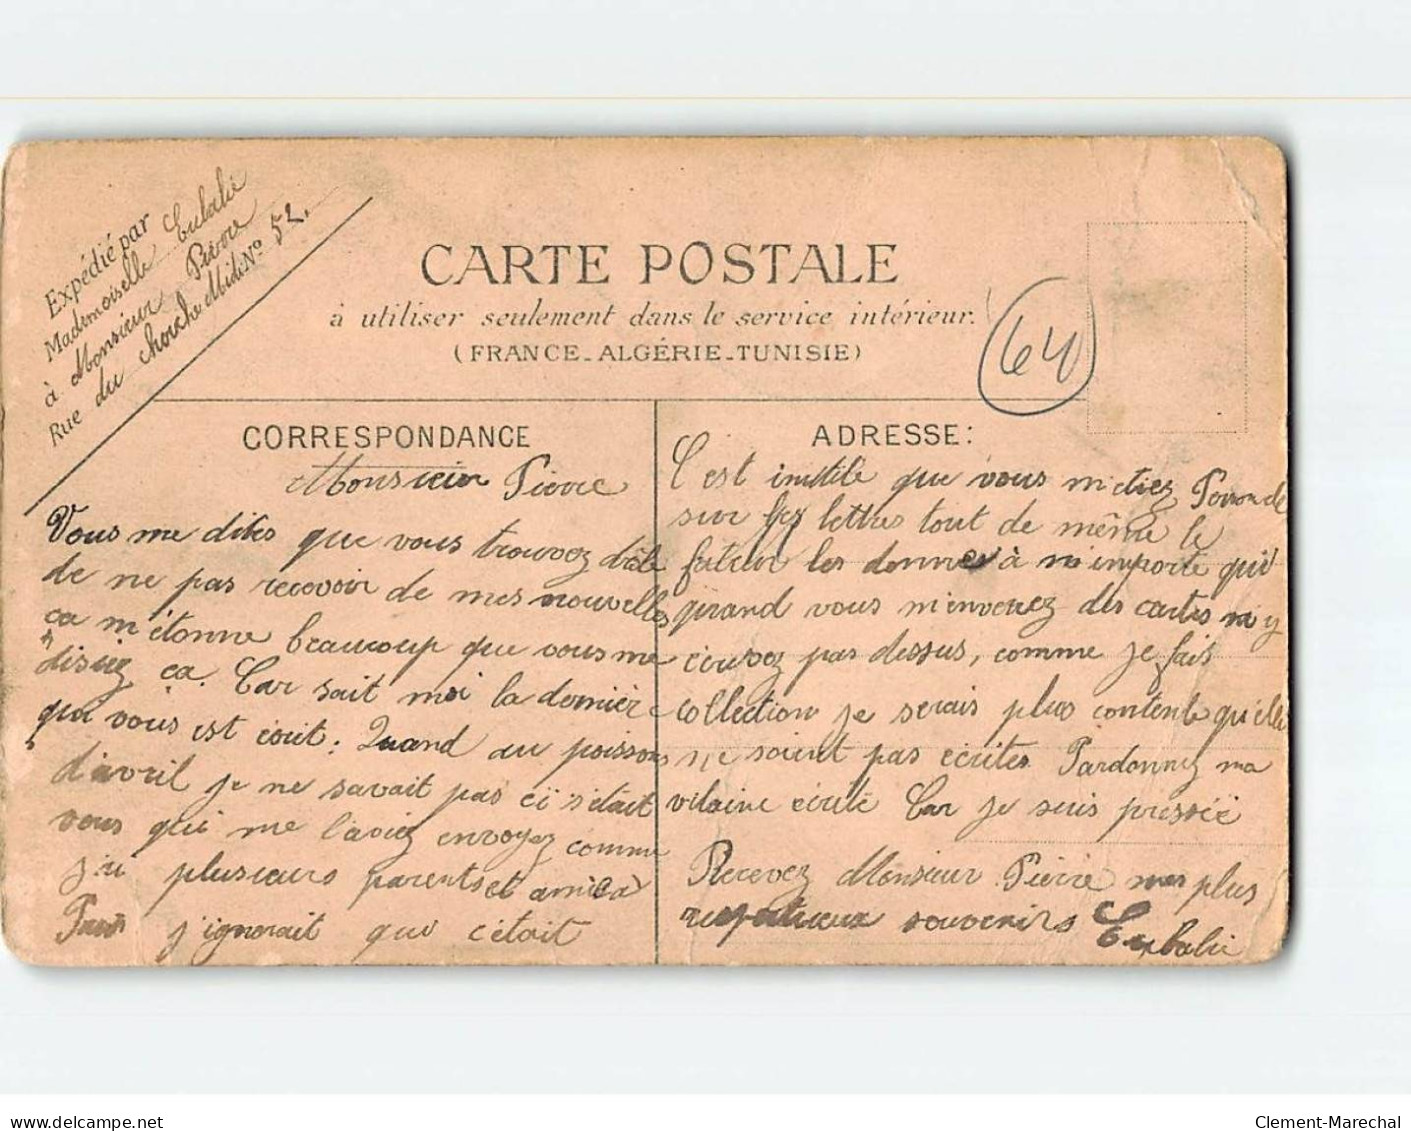 Expédié par
Mademoiselle Eulalie
à Monsieur Pierre
Rue du cherche Midi No 52.
CARTE POSTALE
à utiliser seulement dans le service intérieur.
(FRANCE-ALGÉRIE-TUNISIE)
64
CORRESPONDANCE
Monsieur Pierre
Vous me dites que vous trouvez drôle
de ne pas recevoir de mes nouvelles
ca m'étonne beaucoup que vous me
disiez ca. Car sait moi la dernière
qui vous est écrit. Quand au poissons
d'avril je ne savait pas ci s'était
vous qui me l'aviez envoyez comme
j'ai plusieurs parents et amies à
Paris j'ignorait qui c'était
ADRESSE:
C'est inutile que vous mettiez
sur les lettres tout de même le
facteur les donnes à n'importe qui
quand vous m'enverrez des cartes n'y
écrivez pas dessus, comme je fais
collection je serais plus contente qu'elle
ne soient pas écrites Pardonnez ma
vilaine écrite Car je suis pressée
Recevez Monsieur Pierre mes plus
respectueux souvenirs Eulalie
Clement-Marechal
delcampe.net